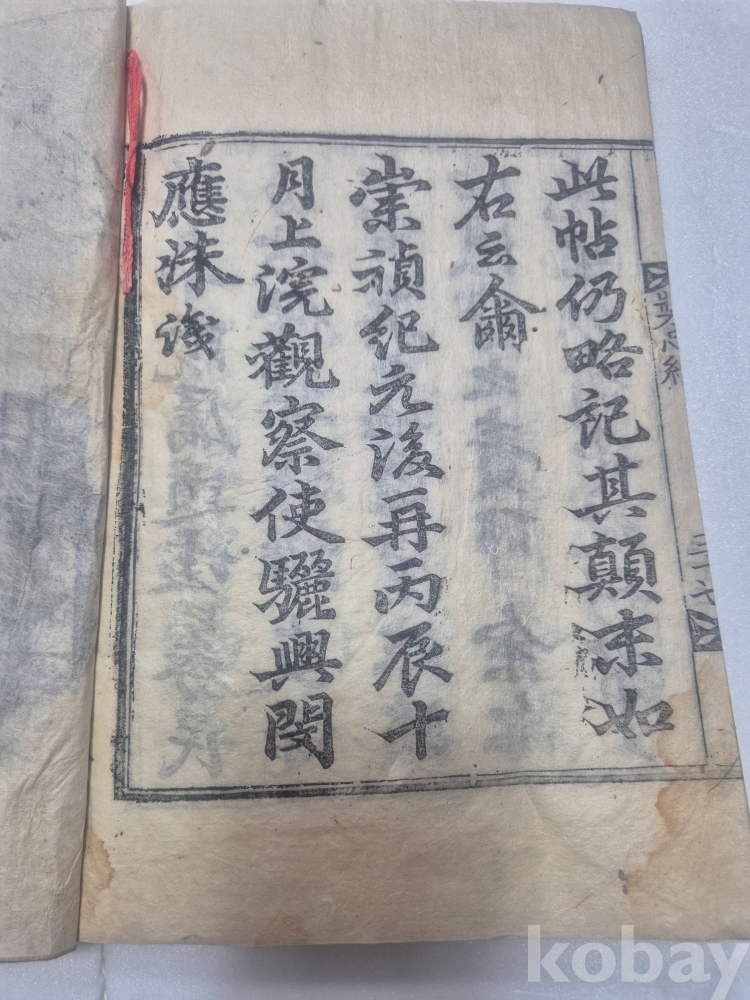 此帖仍略記其顛末如
右云爾
崇禎紀元後再丙辰十
月上浣觀察使驪興閔
應洙識
三十七
kobay